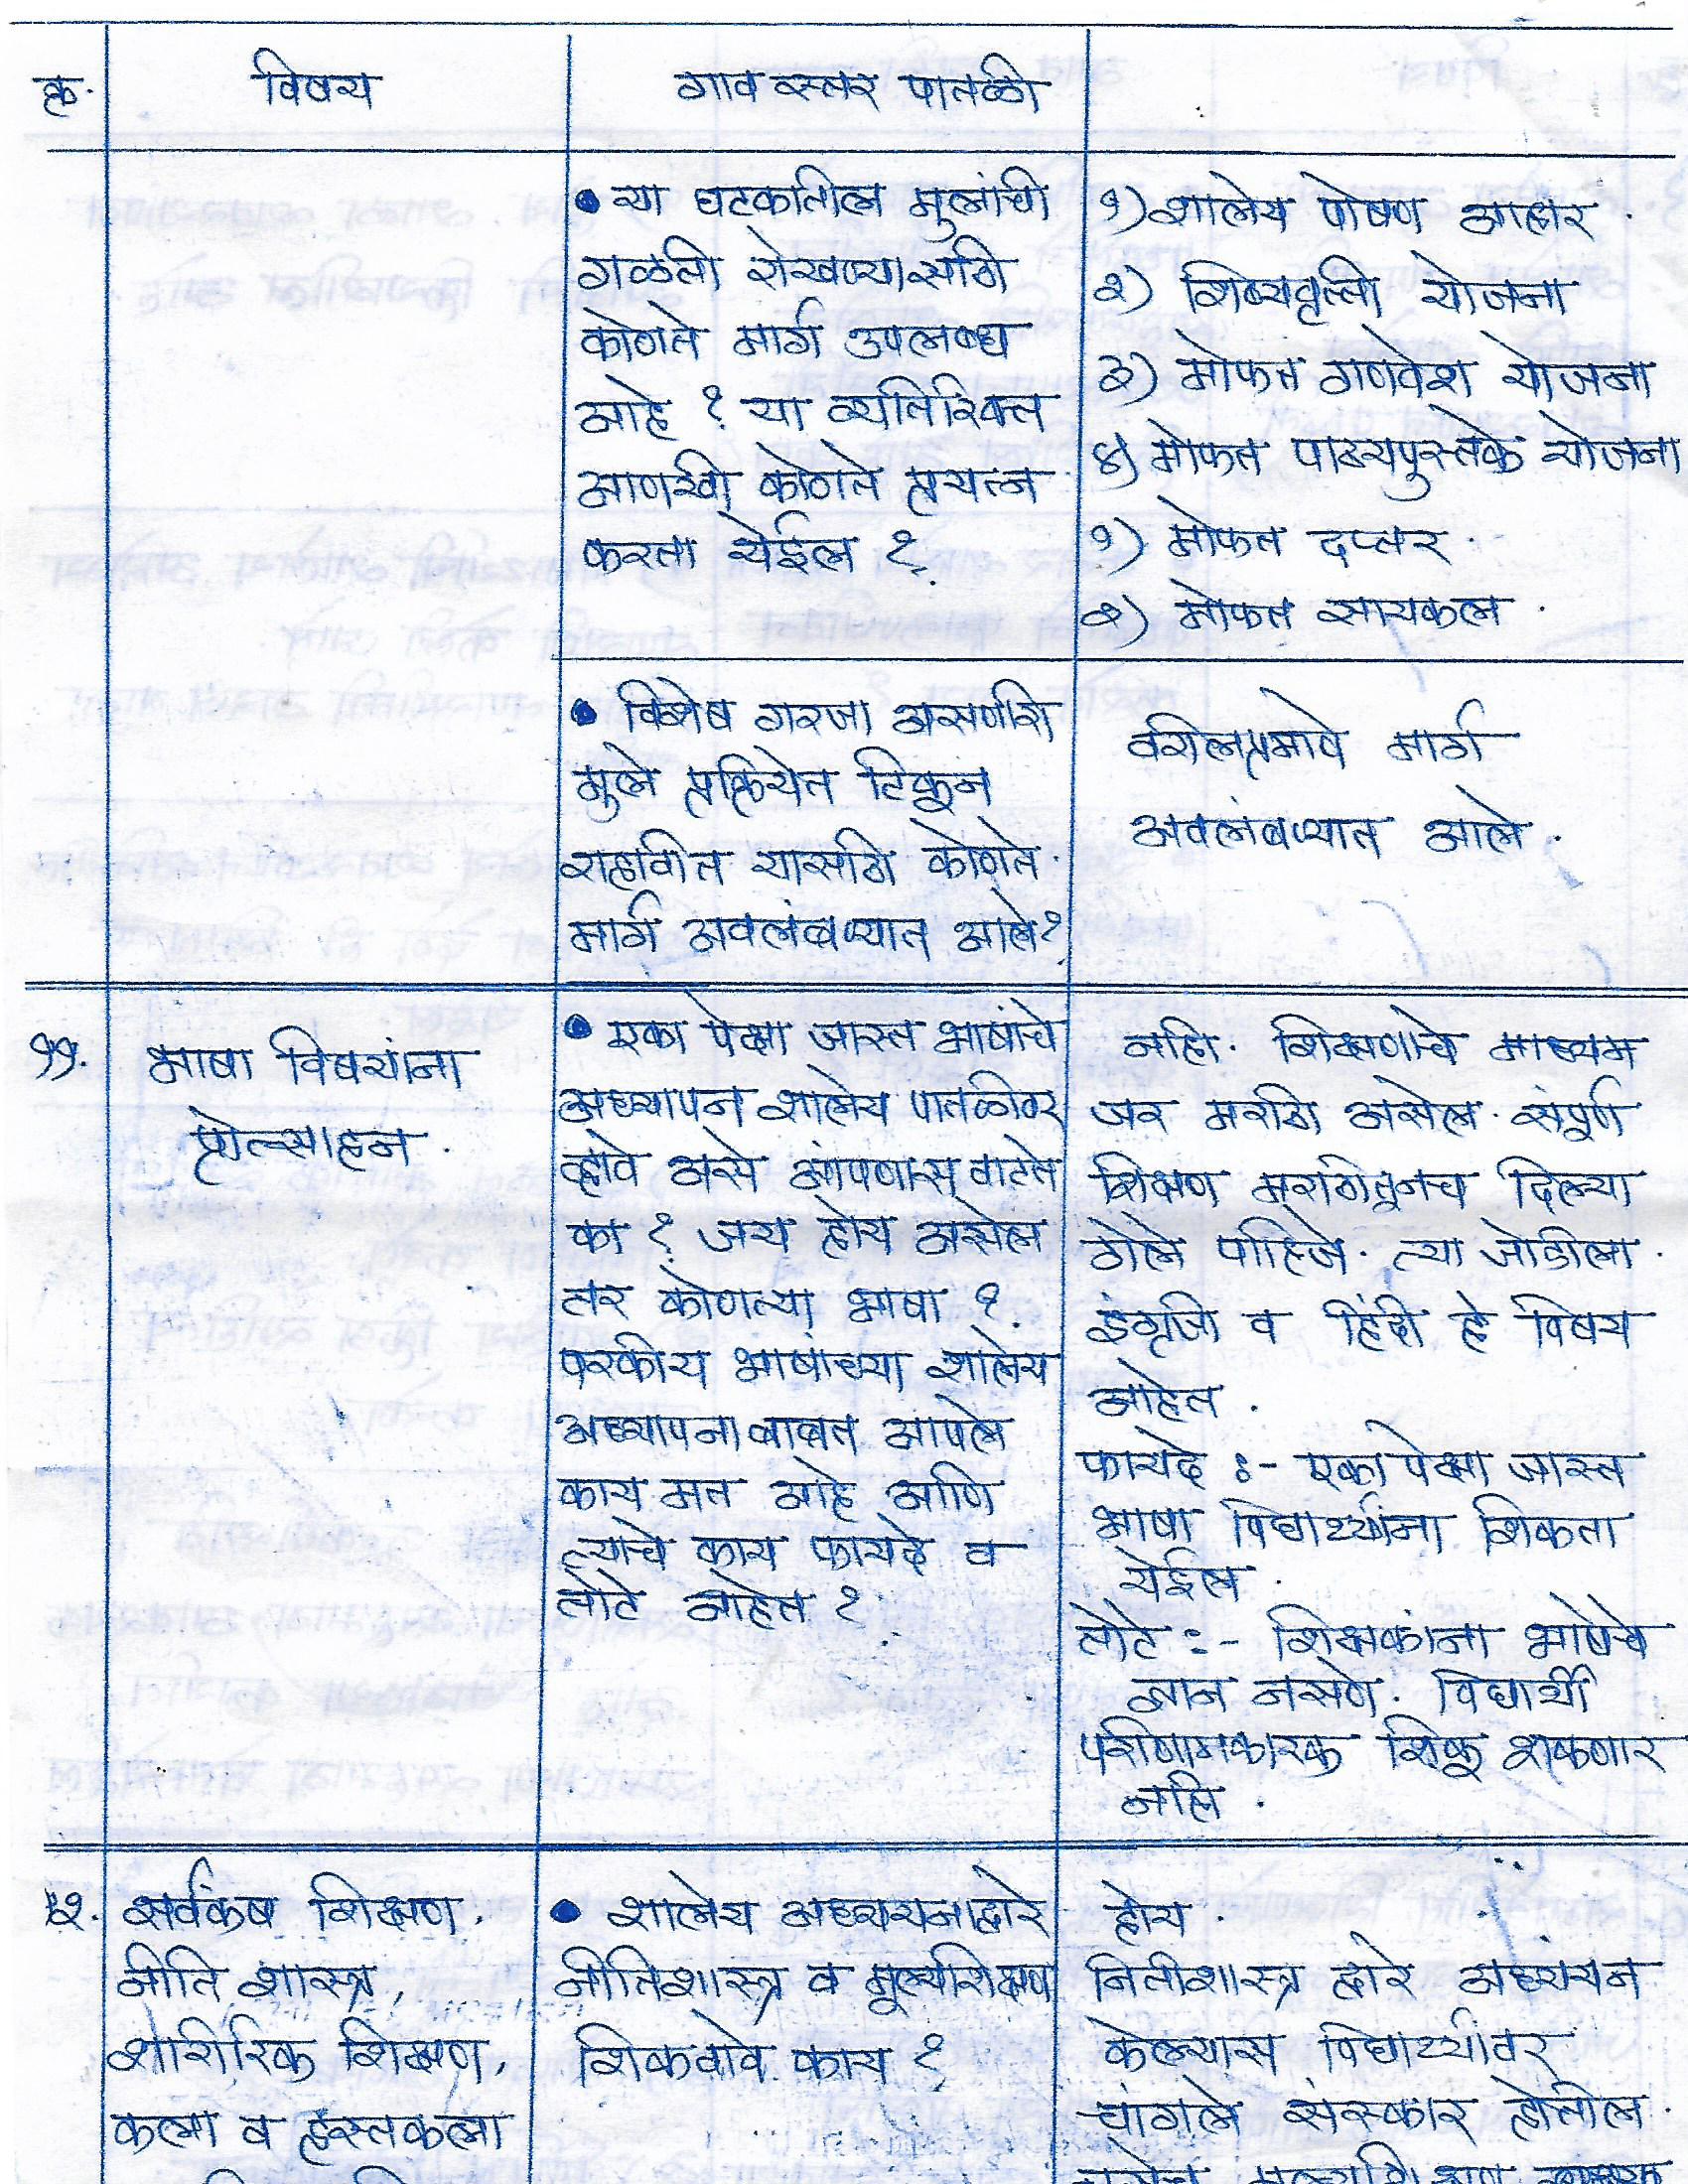 क्र. विषय गाव स्तर पातळी
• या घटकातील मुलांची
गळती रोखण्यासाठी
कोणते मार्ग उपलब्ध
आहे ? या व्यतिरिक्त
आणखी कोणते प्रयत्न
करता येईल ?
१) शालेय पोषण आहार.
२) शिष्यवृत्ती योजना
३) मोफत गणवेश योजना
४) मोफत पाठ्यपुस्तके योजना
१) मोफत दप्तर.
२) मोफत सायकल.
• विशेष गरजा असणारी
मुले प्रक्रियेत टिकून
राहावीत यासाठी कोणते
मार्ग अवलंबण्यात आले?
वरीलप्रमाणे मार्ग
अवलंबण्यात आले.
११. भाषा विषयांना
प्रोत्साहन.
• एका पेक्षा जास्त भाषांचे
अध्यापन शालेय पातळीवर
व्हावे असे आपणास वाटते
का ? जर होय असेल
तर कोणत्या भाषा ?
परकीय भाषांच्या शालेय
अध्यापनाबाबत आपले
काय मत आहे आणि
त्याचे काय फायदे व
तोटे आहेत ?
नाही. शिक्षणाचे माध्यम
जर मराठी असेल. संपूर्ण
शिक्षण मराठीतूनच दिल्या
गेले पाहिजे. त्या जोडीला
इंग्रजी व हिंदी हे विषय
आहेत.
फायदे :- एका पेक्षा जास्त
भाषा विद्यार्थ्यांना शिकता
येईल.
तोटे :- शिक्षकांना भाषेचे
ज्ञान नसणे. विद्यार्थी
परीणामकारक शिकू शकणार
नाही.
१२. सर्वंकष शिक्षण,
नीति शास्त्र,
शारीरिक शिक्षण,
कला व हस्तकला
• शालेय अध्ययनाद्वारे
नीतिशास्त्र व मूल्यशिक्षण
शिकवावे काय ?
होय.
नितीशास्त्र द्वारे अध्ययन
केल्यास विद्यार्थ्यांवर
चांगले संस्कार होतील.